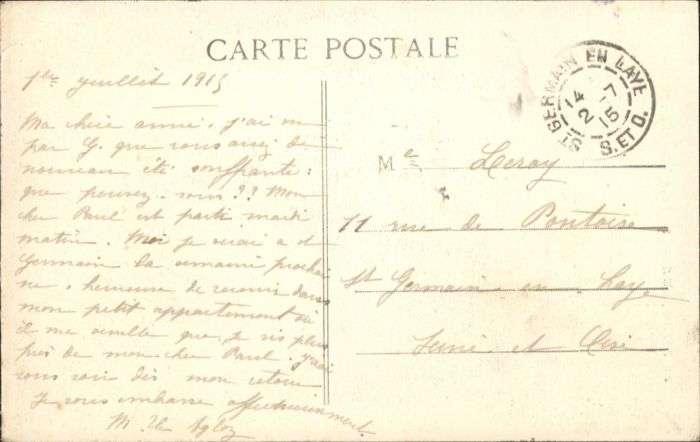 CARTE POSTALE
1er juillet 1915
Ma chère amie. j'ai vu
par G. que vous avez de
nouveau été souffrante:
que pouvez-vous?? Mon
cher Paul est parti mardi
matin. Moi je serai a St
Germain la semaine prochai
ne, heureuse de revenir dans
mon petit appartement où
il me semble que je vis plus
près de mon cher Paul. j'irai
vous voir dès mon retour
Je vous embrasse affectueusement.
M.
ST GERMAIN EN LAYE
14 -7
2 15
S. ET O.
Me Leroy
11 rue de Pontoise
St Germain en Laye
Seine et Oise